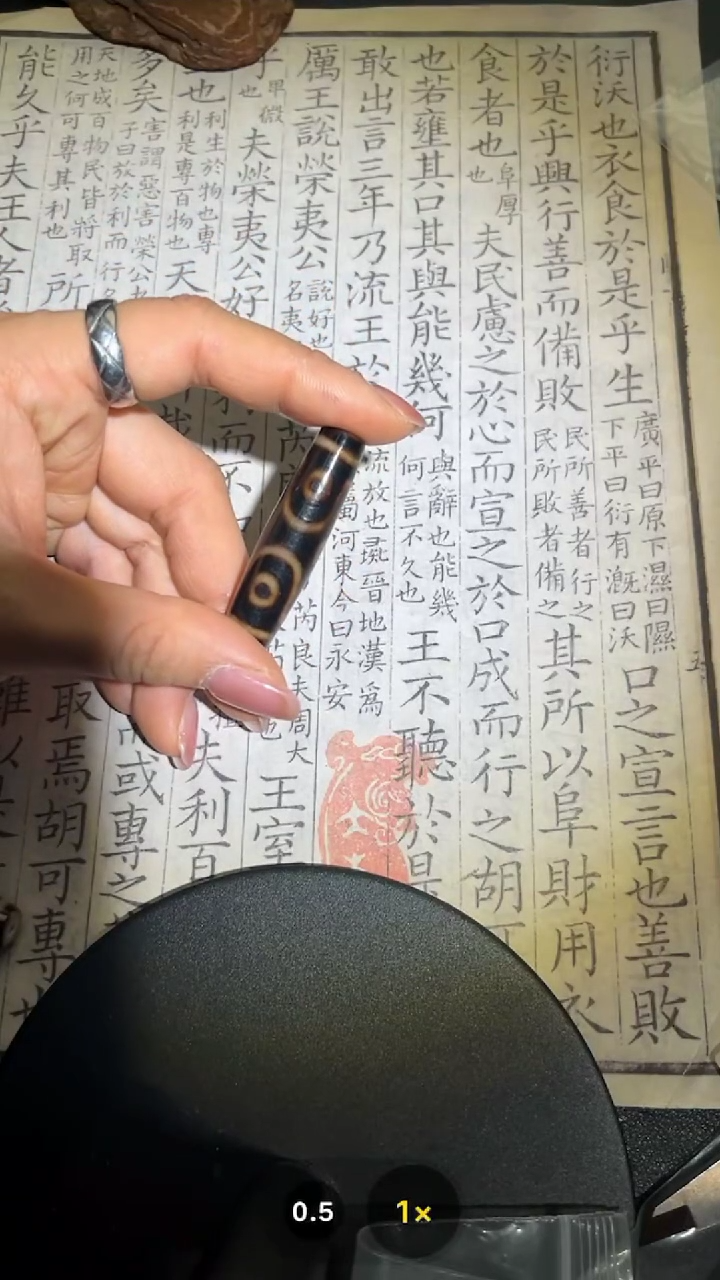 衍沃也衣食於是乎生廣平曰原下濕曰隰下平曰衍有溉曰沃口之宣言也善敗
於是乎興行善而備敗民所善者行之民所敗者備之其所以阜財用衣
食者也阜厚也夫民慮之於心而宣之於口成而行之胡
也若壅其口其與能幾何與辭也能幾何言不久也王不聽於是
敢出言三年乃流王於流放也彘晉地漢爲屬河東今曰永安
厲王說榮夷公說好也名夷芮良夫周大王室
乎卑微也夫榮夷公好而不
也利生於物也專利是專百物也天夫利百
多矣害謂惡害榮公子曰放於利而行而或專之
天地成百物民皆將取用之何可專其利也所取焉胡可專
能久乎夫王人者
0.5 1×